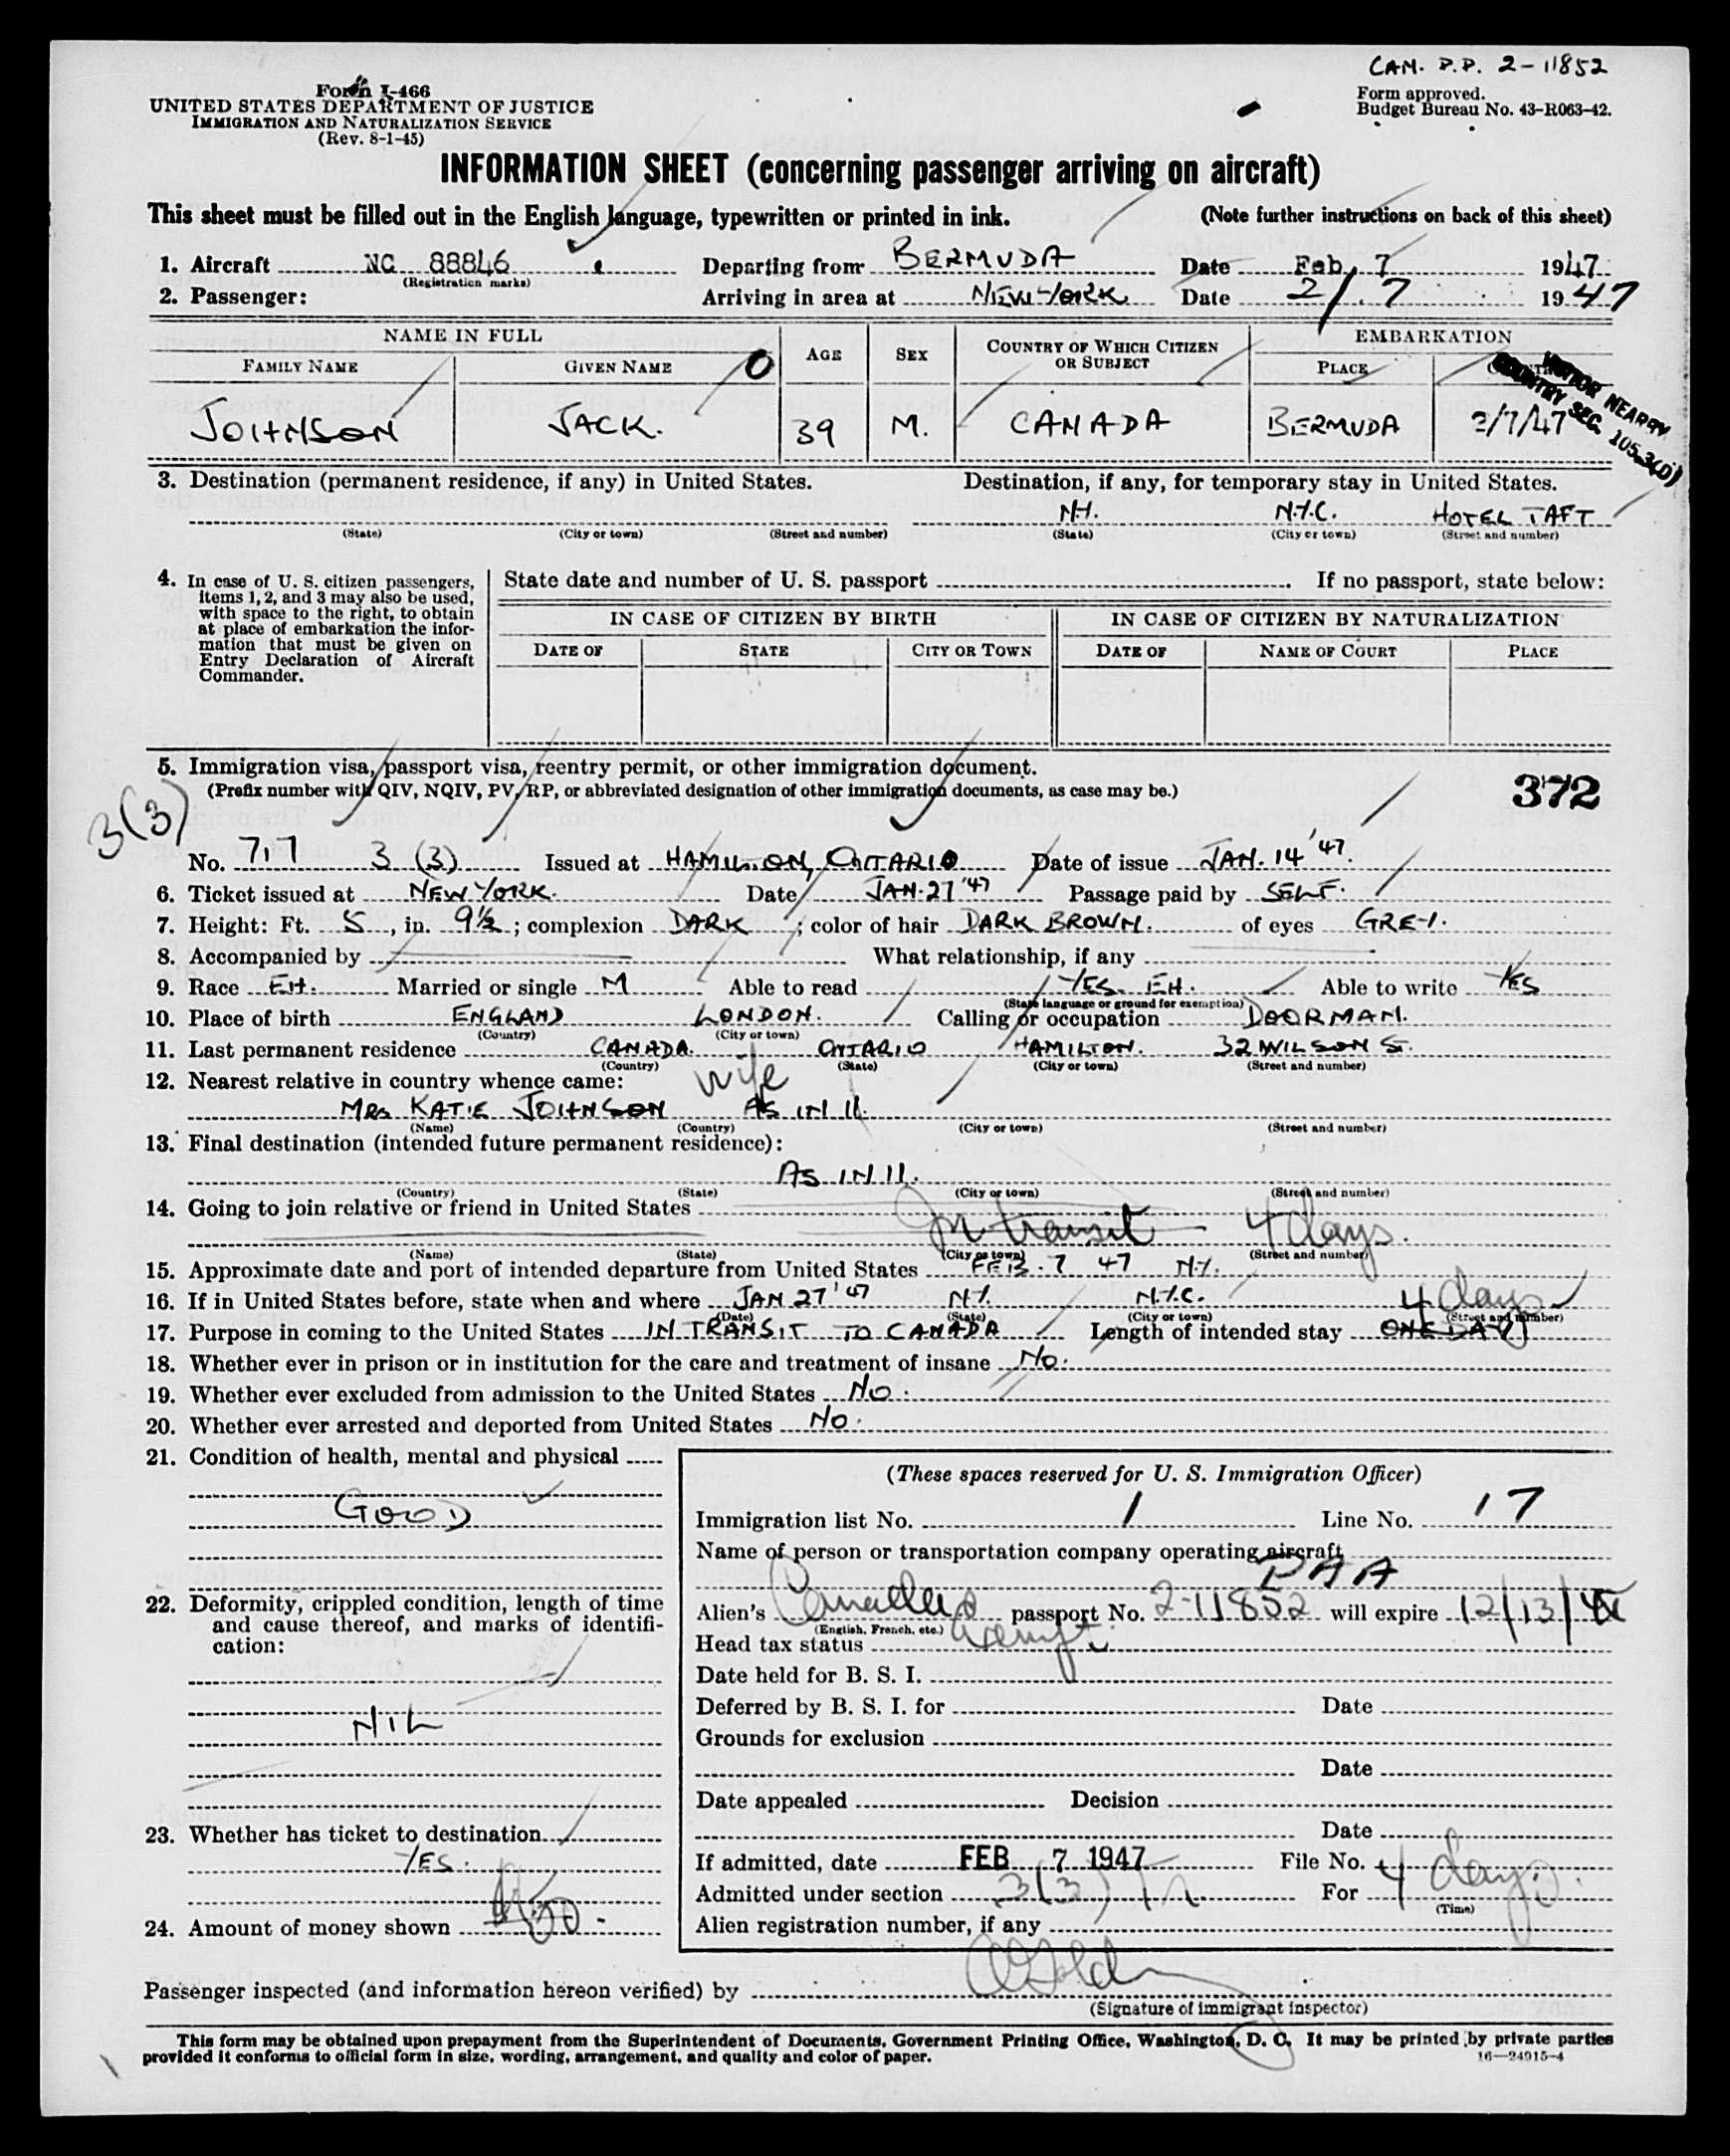 CAN. P.P. 2-11852
Form I-466
UNITED STATES DEPARTMENT OF JUSTICE
IMMIGRATION AND NATURALIZATION SERVICE
(Rev. 8-1-45)
Form approved.
Budget Bureau No. 43-R063-42.
INFORMATION SHEET (concerning passenger arriving on aircraft)
This sheet must be filled out in the English language, typewritten or printed in ink. (Note further instructions on back of this sheet)
1. Aircraft NC 88846 Departing from BERMUDA Date Feb. 7 1947
(Registration marks)
2. Passenger: Arriving in area at NEW YORK Date 2/7 1947
NAME IN FULL AGE SEX COUNTRY OF WHICH CITIZEN OR SUBJECT EMBARKATION
FAMILY NAME GIVEN NAME O PLACE
VISITOR NEARBY
COUNTRY SEC. 105.3(D)
JOHNSON JACK. 39 M. CANADA BERMUDA 2/7/47
3. Destination (permanent residence, if any) in United States. Destination, if any, for temporary stay in United States.
N.Y. N.Y.C. HOTEL TAFT
(State) (City or town) (Street and number) (State) (City or town) (Street and number)
4. In case of U. S. citizen passengers, items 1, 2, and 3 may also be used, with space to the right, to obtain at place of embarkation the information that must be given on Entry Declaration of Aircraft Commander.
State date and number of U. S. passport . If no passport, state below:
IN CASE OF CITIZEN BY BIRTH IN CASE OF CITIZEN BY NATURALIZATION
DATE OF STATE CITY OR TOWN DATE OF NAME OF COURT PLACE
5. Immigration visa, passport visa, reentry permit, or other immigration document.
(Prefix number with QIV, NQIV, PV, RP, or abbreviated designation of other immigration documents, as case may be.)
372
3(3)
No. 717 3 (3) Issued at HAMILTON, ONTARIO Date of issue JAN. 14 '47.
6. Ticket issued at NEW YORK. Date JAN. 27 '47 Passage paid by SELF.
7. Height: Ft. 5, in. 9½; complexion DARK; color of hair DARK BROWN. of eyes GREY.
8. Accompanied by What relationship, if any
9. Race EH. Married or single M Able to read YES. EH. Able to write YES
(State language or ground for exemption)
10. Place of birth ENGLAND LONDON. Calling or occupation DOORMAN.
(Country) (City or town)
11. Last permanent residence CANADA. ONTARIO HAMILTON. 32 WILSON ST.
(Country) (State) (City or town) (Street and number)
12. Nearest relative in country whence came: wife
MRS KATIE JOHNSON AS IN 11.
(Name) (Country) (City or town) (Street and number)
13. Final destination (intended future permanent residence):
AS IN 11.
(Country) (State) (City or town) (Street and number)
14. Going to join relative or friend in United States
In transit - 4 days.
(Name) (State) (City or town) (Street and number)
15. Approximate date and port of intended departure from United States FEB. 7 47 N.Y.
16. If in United States before, state when and where JAN 27 '47 N.Y. N.Y.C. 4 days
(Date) (State) (City or town) (Street and number)
17. Purpose in coming to the United States IN TRANSIT TO CANADA Length of intended stay ONE DAY
18. Whether ever in prison or in institution for the care and treatment of insane No.
19. Whether ever excluded from admission to the United States No.
20. Whether ever arrested and deported from United States No.
21. Condition of health, mental and physical
GOOD
22. Deformity, crippled condition, length of time and cause thereof, and marks of identification:
NIL
23. Whether has ticket to destination
YES.
24. Amount of money shown
(These spaces reserved for U. S. Immigration Officer)
Immigration list No. 1 Line No. 17
Name of person or transportation company operating aircraft
PAA
Alien's passport No. 2-11852 will expire 12/13/
(English, French, etc.)
Head tax status exempt
Date held for B. S. I.
Deferred by B. S. I. for Date
Grounds for exclusion
Date
Date appealed Decision
Date
If admitted, date FEB 7 1947 File No.
Admitted under section 3(3) For 4 days.
(Time)
Alien registration number, if any
Passenger inspected (and information hereon verified) by
(Signature of immigrant inspector)
This form may be obtained upon prepayment from the Superintendent of Documents, Government Printing Office, Washington, D. C. It may be printed by private parties
provided it conforms to official form in size, wording, arrangement, and quality and color of paper.
16—24915-4